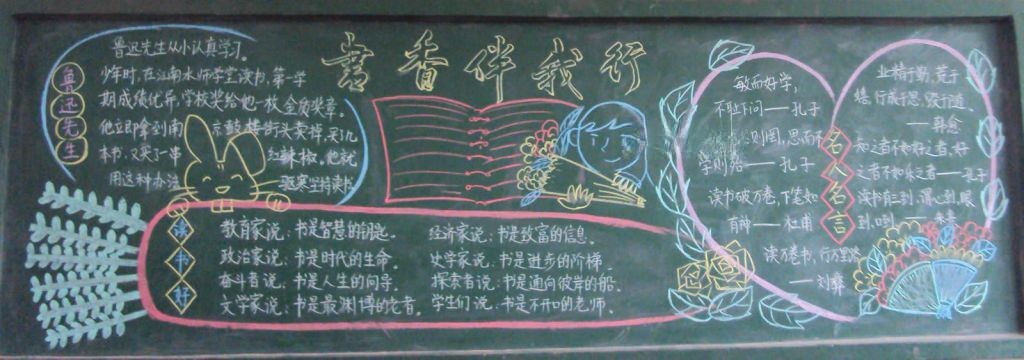 書香伴我行
鲁迅先生
鲁迅先生从小认真学习。
少年时,在江南水师学堂读书,第一学
期成绩优异,学校奖给他一枚金质奖章。
他立即拿到南京鼓楼街头卖掉,买几
本书,又买了一串红辣椒,他就
用这种办法驱寒坚持读书
读书好
教育家说:书是智慧的钥匙。
政治家说:书是时代的生命。
奋斗者说:书是人生的向导。
文学家说:书是最渊博的
经济家说:书是致富的信息。
史学家说:书是进步的阶梯。
探索者说:书是通向彼岸的船。
学生们说:书是不开口的老师。
名人名言
敏而好学,
不耻下问——孔子
则罔,思而不
学则殆——孔子
读书破万卷,下笔如
有神——杜甫
读万卷书,行万里路
——刘彝
业精于勤,荒于
嬉,行成于思,毁于随。
——韩愈
知之者不如好之者,好
之者不如乐之者——孔子
读书有三到,谓心到,眼
到,口到——朱熹